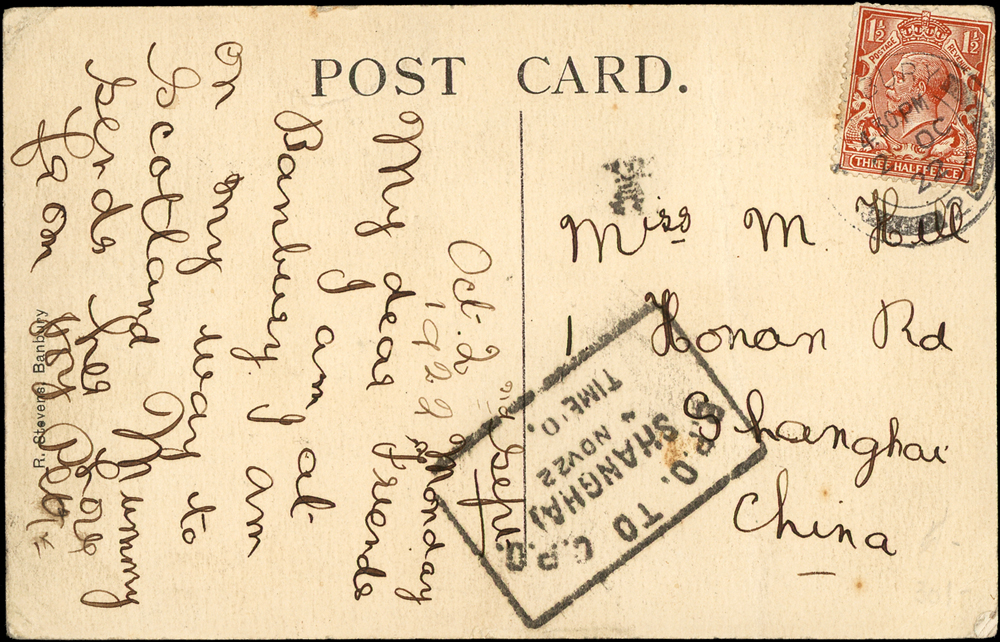 POST CARD.
1½ 1½
POSTAGE REVENUE
THREE HALFPENCE
4.30 PM
OC
22
Miss M. Hill
1 Honan Rd
Shanghai
China
B.P.O. TO C.P.O.
SHANGHAI
NOV 22
TIME 0.
Sept
Oct. 2nd Monday
1922
My dear Friends
I am at
Banbury I am
on my way to
Scotland Mummy
sends her love
from
R. Stevens Banbury